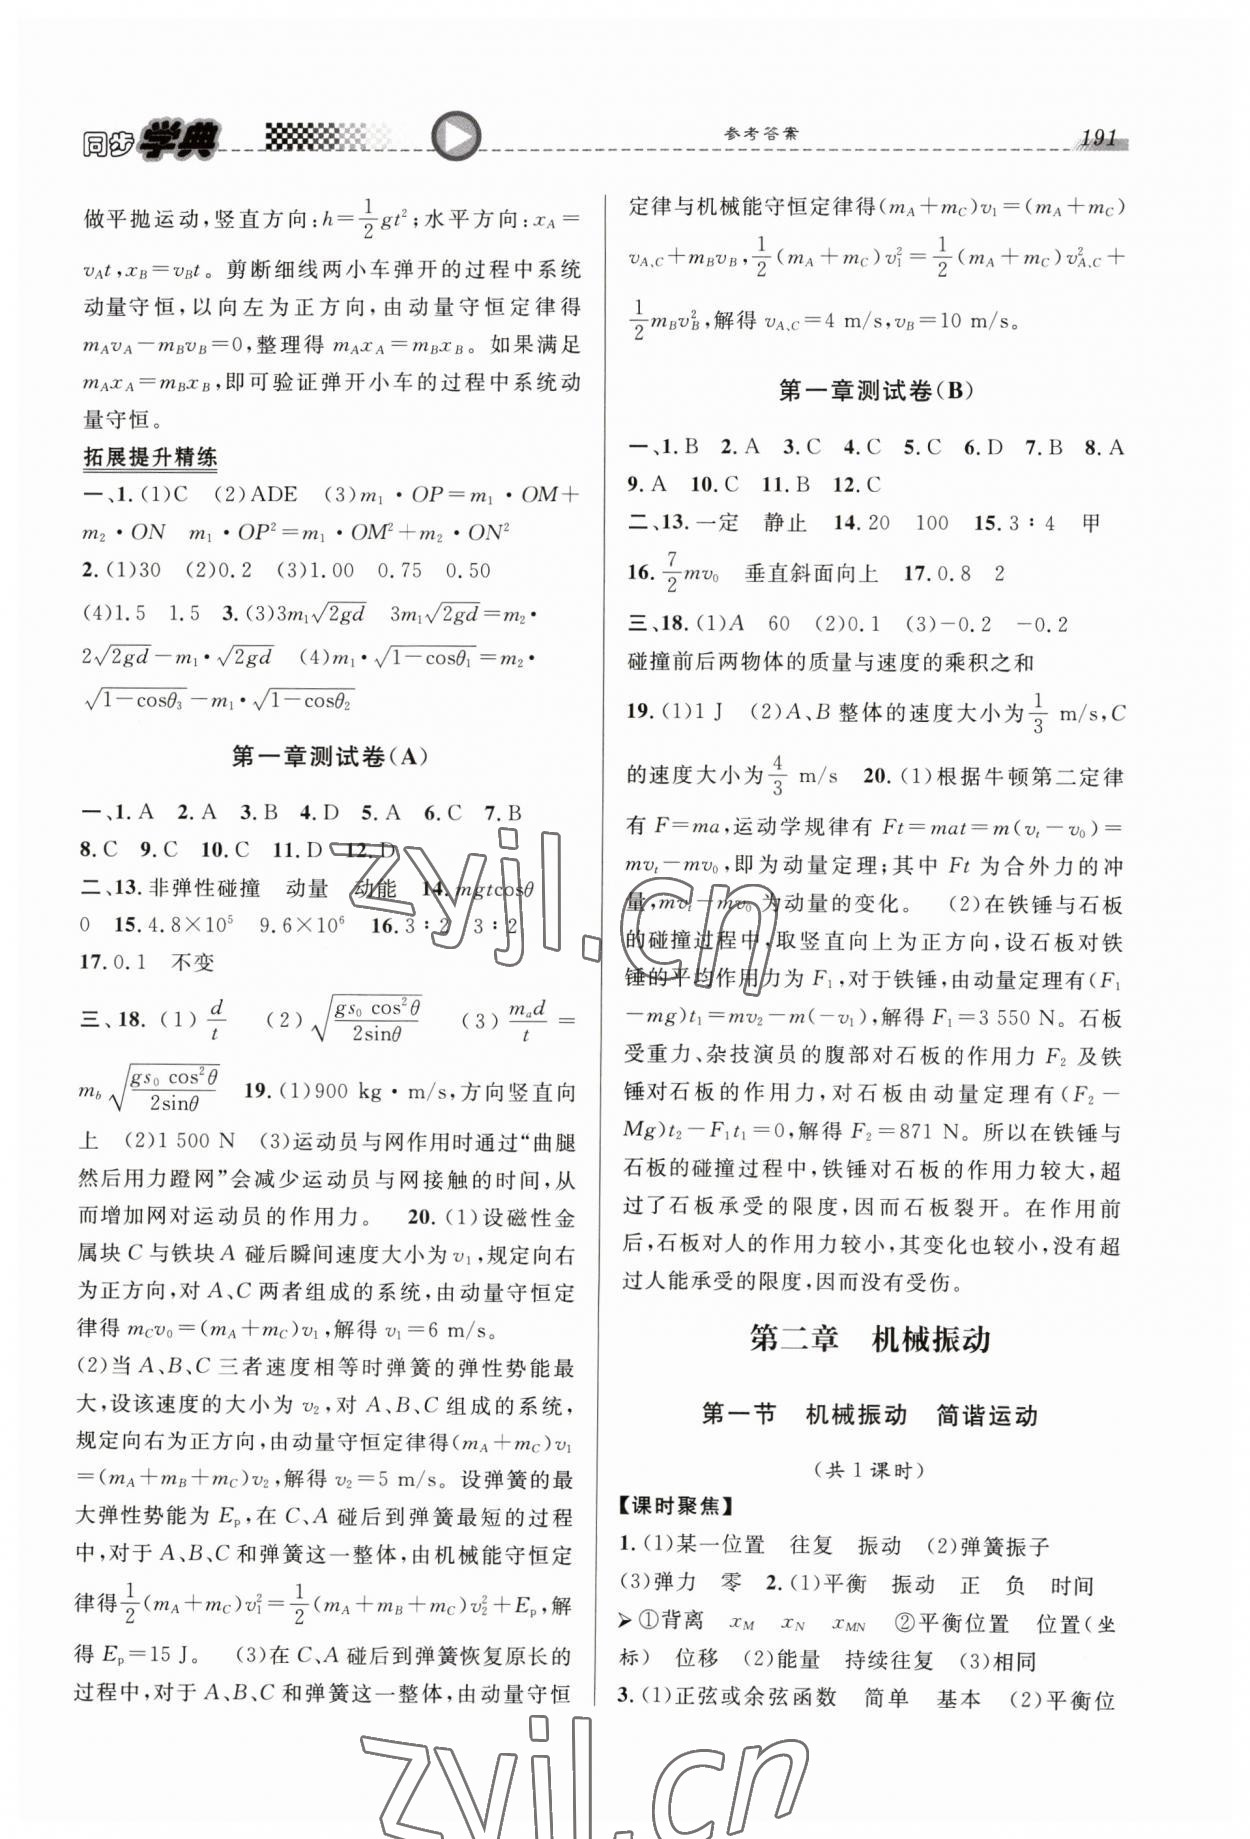 同步学典
参考答案
191
做平抛运动,竖直方向:h=\frac{1}{2}gt²;水平方向:x_A=
v_At,x_B=v_Bt。剪断细线两小车弹开的过程中系统
动量守恒,以向左为正方向,由动量守恒定律得
m_Av_A-m_Bv_B=0,整理得 m_Ax_A=m_Bx_B。如果满足
m_Ax_A=m_Bx_B,即可验证弹开小车的过程中系统动
量守恒。
拓展提升精练
一、1.(1)C (2)ADE (3)m₁·OP=m₁·OM+
m₂·ON m₁·OP²=m₁·OM²+m₂·ON²
2.(1)30 (2)0.2 (3)1.00 0.75 0.50
(4)1.5 1.5 3.(3)3m₁√(2gd) 3m₁√(2gd)=m₂·
2√(2gd)-m₁·√(2gd) (4)m₁·√(1-cosθ₁)=m₂·
√(1-cosθ₃)-m₁·√(1-cosθ₂)
第一章测试卷(A)
一、1.A 2.A 3.B 4.D 5.A 6.C 7.B
8.C 9.C 10.C 11.D 12.D
二、13.非弹性碰撞 动量 动能 14.mgtcosθ
0 15.4.8×10⁵ 9.6×10⁶ 16.3∶2 3∶2
17.0.1 不变
三、18.(1)\frac{d}{t} (2)\sqrt{\frac{gs₀ cos²θ}{2sinθ}} (3)\frac{m_ad}{t}=
m_b\sqrt{\frac{gs₀ cos²θ}{2sinθ}} 19.(1)900 kg·m/s,方向竖直向
上 (2)1 500 N (3)运动员与网作用时通过“曲腿
然后用力蹬网”会减少运动员与网接触的时间,从
而增加网对运动员的作用力。 20.(1)设磁性金
属块 C 与铁块 A 碰后瞬间速度大小为 v₁,规定向右
为正方向,对 A、C 两者组成的系统,由动量守恒定
律得 m_Cv₀=(m_A+m_C)v₁,解得 v₁=6 m/s。
(2)当 A、B、C 三者速度相等时弹簧的弹性势能最
大,设该速度的大小为 v₂,对 A、B、C 组成的系统,
规定向右为正方向,由动量守恒定律得(m_A+m_C)v₁
=(m_A+m_B+m_C)v₂,解得 v₂=5 m/s。设弹簧的最
大弹性势能为 E_p,在 C、A 碰后到弹簧最短的过程
中,对于 A、B、C 和弹簧这一整体,由机械能守恒定
律得\frac{1}{2}(m_A+m_C)v₁²=\frac{1}{2}(m_A+m_B+m_C)v₂²+E_p,解
得 E_p=15 J。 (3)在 C、A 碰后到弹簧恢复原长的
过程中,对于 A、B、C 和弹簧这一整体,由动量守恒
定律与机械能守恒定律得(m_A+m_C)v₁=(m_A+m_C)
v_{A,C}+m_Bv_B,\frac{1}{2}(m_A+m_C)v₁²=\frac{1}{2}(m_A+m_C)v_{A,C}²+
\frac{1}{2}m_Bv_B²,解得 v_{A,C}=4 m/s,v_B=10 m/s。
第一章测试卷(B)
一、1.B 2.A 3.C 4.C 5.C 6.D 7.B 8.A
9.A 10.C 11.B 12.C
二、13.一定 静止 14.20 100 15.3∶4 甲
16.\frac{7}{2}mv₀ 垂直斜面向上 17.0.8 2
三、18.(1)A 60 (2)0.1 (3)-0.2 -0.2
碰撞前后两物体的质量与速度的乘积之和
19.(1)1 J (2)A、B 整体的速度大小为\frac{1}{3} m/s,C
的速度大小为\frac{4}{3} m/s 20.(1)根据牛顿第二定律
有 F=ma,运动学规律有 Ft=mat=m(v_t-v₀)=
mv_t-mv₀,即为动量定理;其中 Ft 为合外力的冲
量,mv_t-mv₀ 为动量的变化。 (2)在铁锤与石板
的碰撞过程中,取竖直向上为正方向,设石板对铁
锤的平均作用力为 F₁,对于铁锤,由动量定理有(F₁
-mg)t₁=mv₂-m(-v₁),解得 F₁=3 550 N。石板
受重力、杂技演员的腹部对石板的作用力 F₂ 及铁
锤对石板的作用力,对石板由动量定理有(F₂-
Mg)t₂-F₁t₁=0,解得 F₂=871 N。所以在铁锤与
石板的碰撞过程中,铁锤对石板的作用力较大,超
过了石板承受的限度,因而石板裂开。在作用前
后,石板对人的作用力较小,其变化也较小,没有超
过人能承受的限度,因而没有受伤。
第二章 机械振动
第一节 机械振动 简谐运动
(共1课时)
【课时聚焦】
1.(1)某一位置 往复 振动 (2)弹簧振子
(3)弹力 零 2.(1)平衡 振动 正 负 时间
➢①背离 x_M x_N x_{MN} ②平衡位置 位置(坐
标) 位移 (2)能量 持续往复 (3)相同
3.(1)正弦或余弦函数 简单 基本 (2)平衡位
zyjl.cn
zyjl.cn